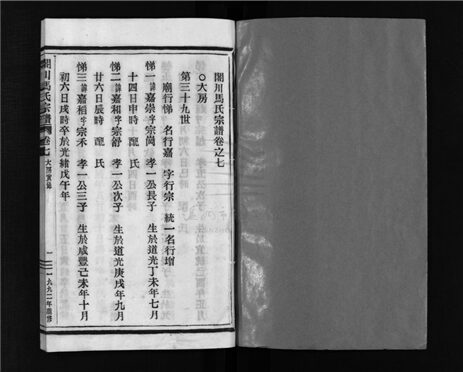 閣川馬氏宗譜卷之七
○大房
第三十九世
廟行悌 名行嘉 字行宗 統一名行增
悌一諱嘉崇字宗岡 孝一公長子 生於道光丁未年七月
十四日申時 配 氏
悌二諱嘉和字宗舒 孝一公次子 生於道光庚戌年九月
廿六日辰時 配 氏
悌三諱嘉稻字宗禾 孝一公三子 生於咸豐己未年十月
初六日戌時卒於光緒戊午年
閣川馬氏宗譜 卷七 大房實錄
一 一九九二年重修